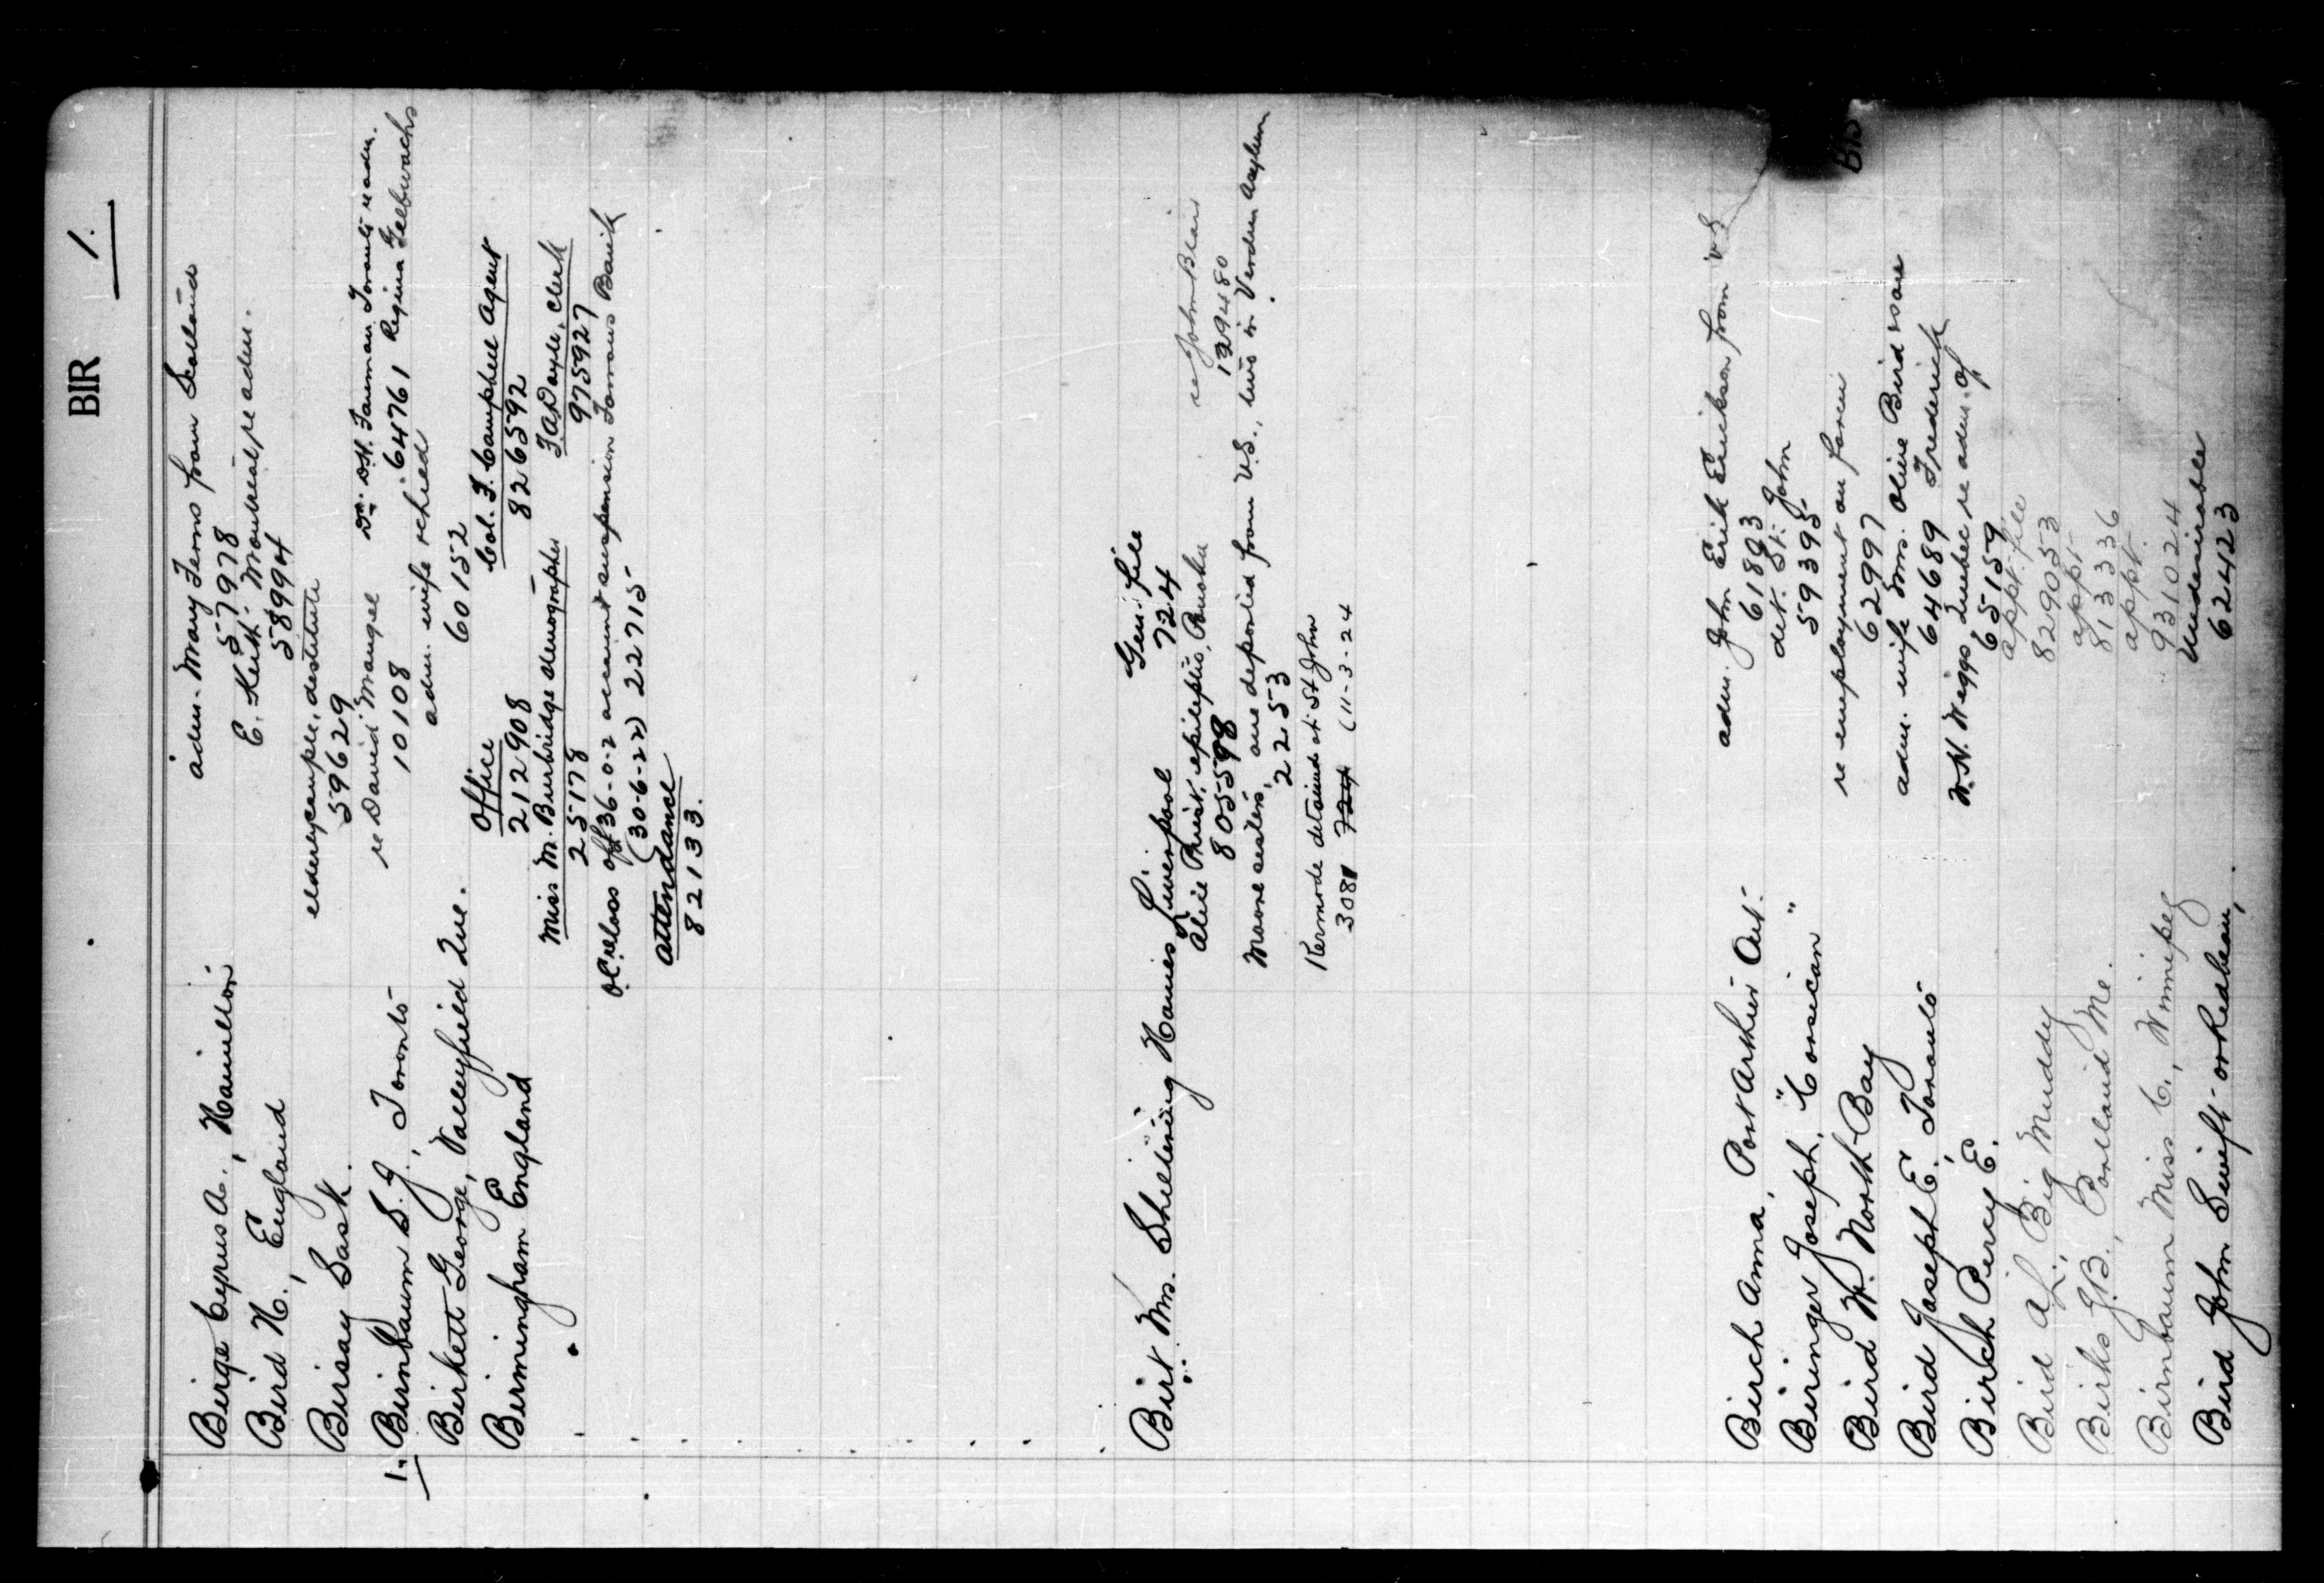 BIR 1.
Birge Cyrus A., Hamilton adm. Mary Ferns from Scotland
57978
Bird H., England E. Keith Montreal, re adm.
58994
Birsay Sask. elderexample, destitute
59629
1. Birnbaum S. J., Toronto re David Mangel Dr. D.H. Fauman Toronto re adm.
10108 64761 Regina
Birkett George, Valleyfield Que. adm. wife
60152
Birmingham England Office Col. F. Campbell Agent
212908 826592
Miss M. Burbridge stenographer F.A. Doyle, Clerk
25178 975927
O.C. re loss of £36-0-2 account suspension Farrows Bank
(30-6-22) 22715
attendance
82133.
Birt Mrs. Sheltering Homes Liverpool Gen. file
724
Alice Priest, epileptic, Ponoka re John Blair
805598 1294480
Moore sisters, one deported from U.S., two in Verdun Asylum
2253
Kermode detained at St John
3081 724 (11-3-24
Birch Anna, Port Arthur Ont. adm. John Erik Erickson from U.S.
61803
Biringer Joseph, "Corsican" det. St. John
59395
BIR
Bird W. North Bay re employment on farm
62997
Bird Joseph E., Toronto adm. wife Mrs. Olive Bird & son
64689 Frederick
Birch Percy E. W.H. Wiggs Quebec re adm. of
65159
Bird A.L., Big Muddy appt. file
829053
Birks J.B., Portland Me. appt.
813336
Birnbaum Miss C., Winnipeg appt.
931024
Bird John Swift or Redbean, Undesirable
62423